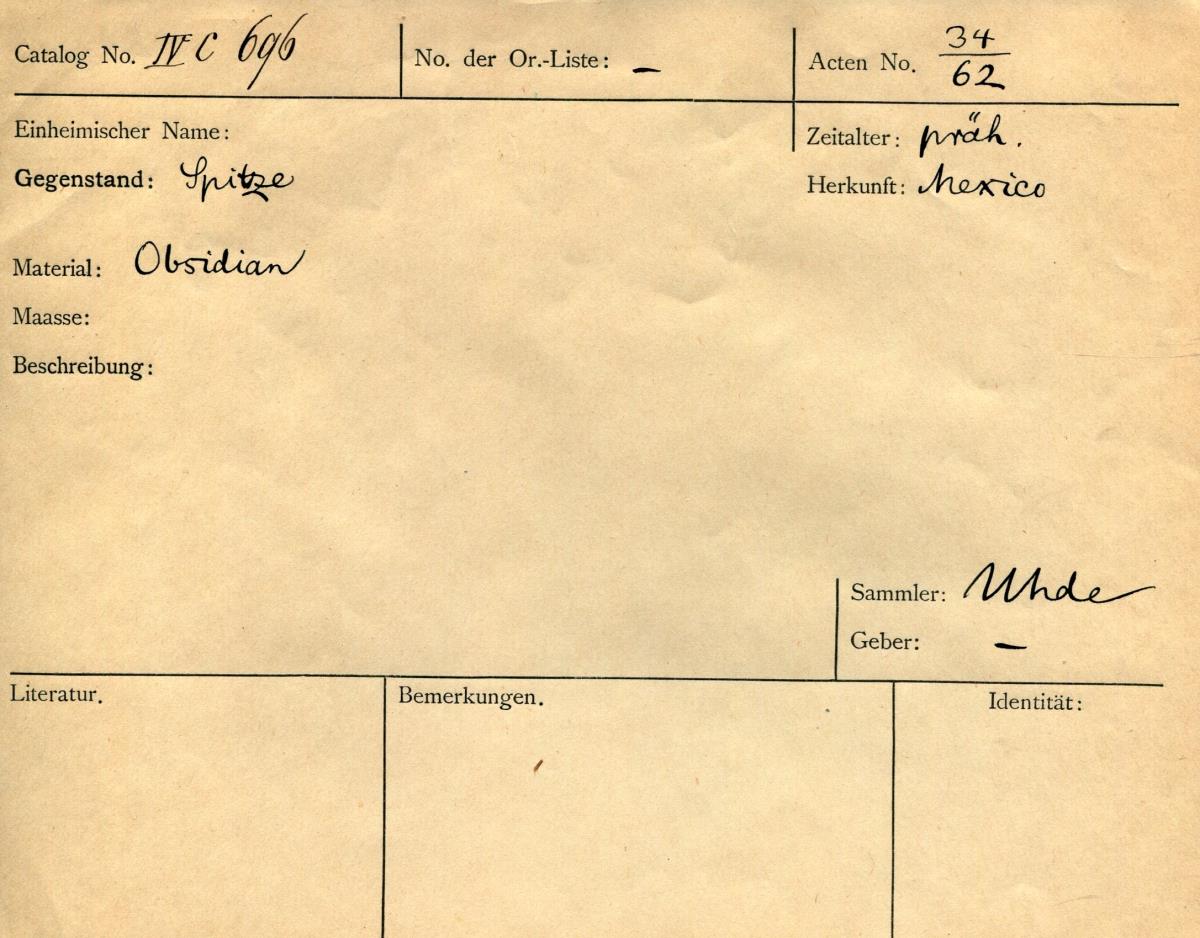 Catalog No. IV C 696 No. der Or.-Liste: – Acten No. 34/62
Einheimischer Name: Zeitalter: präh.
Gegenstand: Spitze Herkunft: Mexico
Material: Obsidian
Maasse:
Beschreibung:
Sammler: Uhde
Geber: –
Literatur. Bemerkungen. Identität: